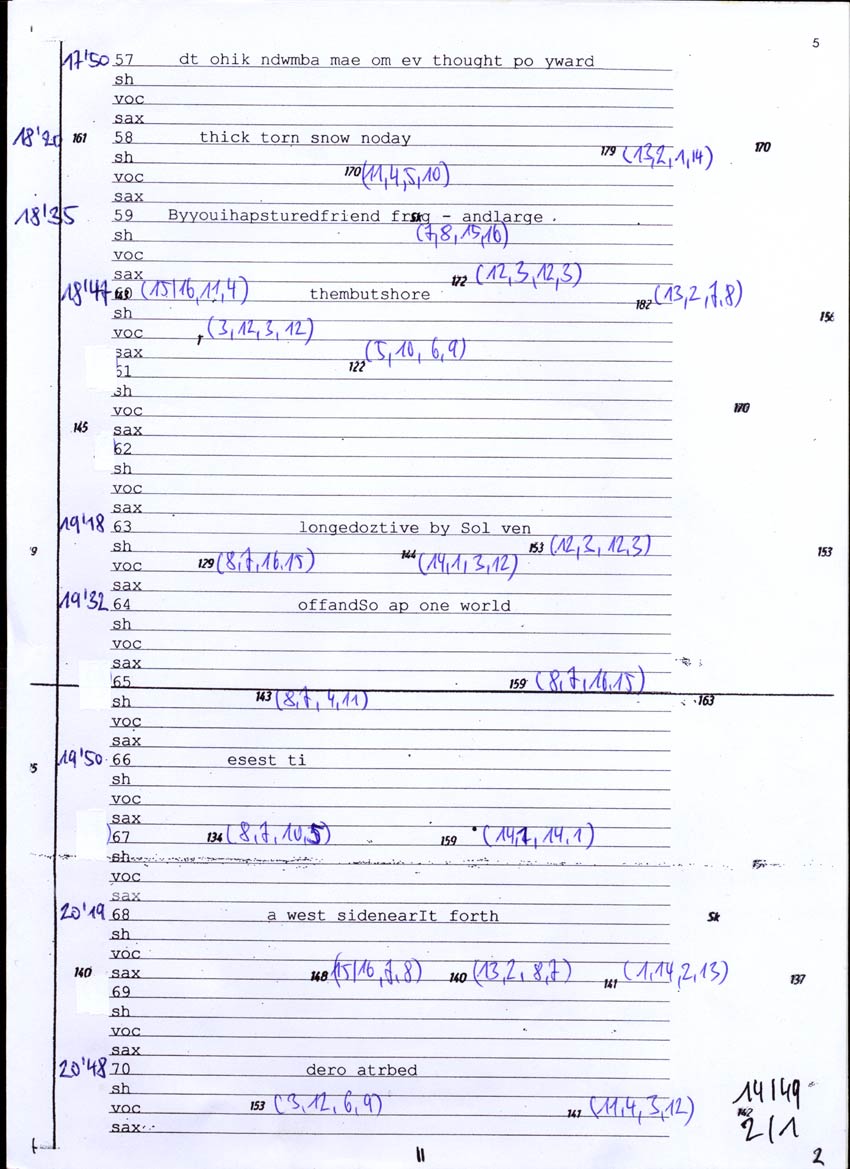 5
17'50 57 dt ohik ndwmba mae om ev thought po yward
sh
voc
sax
18'20 161 58 thick torn snow noday
sh 179 (13,2,1,14) 170
voc 170 (11,4,5,10)
sax
18'35 59 Byyouihapsturedfriend frqg - andlarge .
sh (7,8,15,16)
voc
sax 172 (12,3,12,3)
18'47 60 (15/16,11,4) thembutshore 182 (13,2,7,8)
sh 156
voc (3,12,3,12)
sax 122 (5,10,6,9)
61
sh
voc 170
145 sax
62
sh
voc
sax
19'18 63 longedoztive by Sol ven
9 sh 153 (12,3,12,3) 153
voc 129 (8,7,16,15) 144 (14,1,3,12)
sax
19'32 64 offandSo ap one world
sh
voc
sax
65 159 (8,7,16,15)
sh 143 (8,7,4,11) 163
voc
sax
19'50 66 esest ti
5 sh
voc
sax
67 134 (8,7,10,5) 159 (14,1,14,1)
sh
voc
sax
20'19 68 a west sidenearIt forth Sk
sh
voc
140 sax 148 (15/16,7,8) 140 (13,2,8,7) 141 (1,14,2,13) 137
69
sh
voc
sax
20'48 70 dero atrbed
sh 14/49
voc 153 (3,12,6,9) 141 (11,4,3,12) 142
sax 2/1
11 2